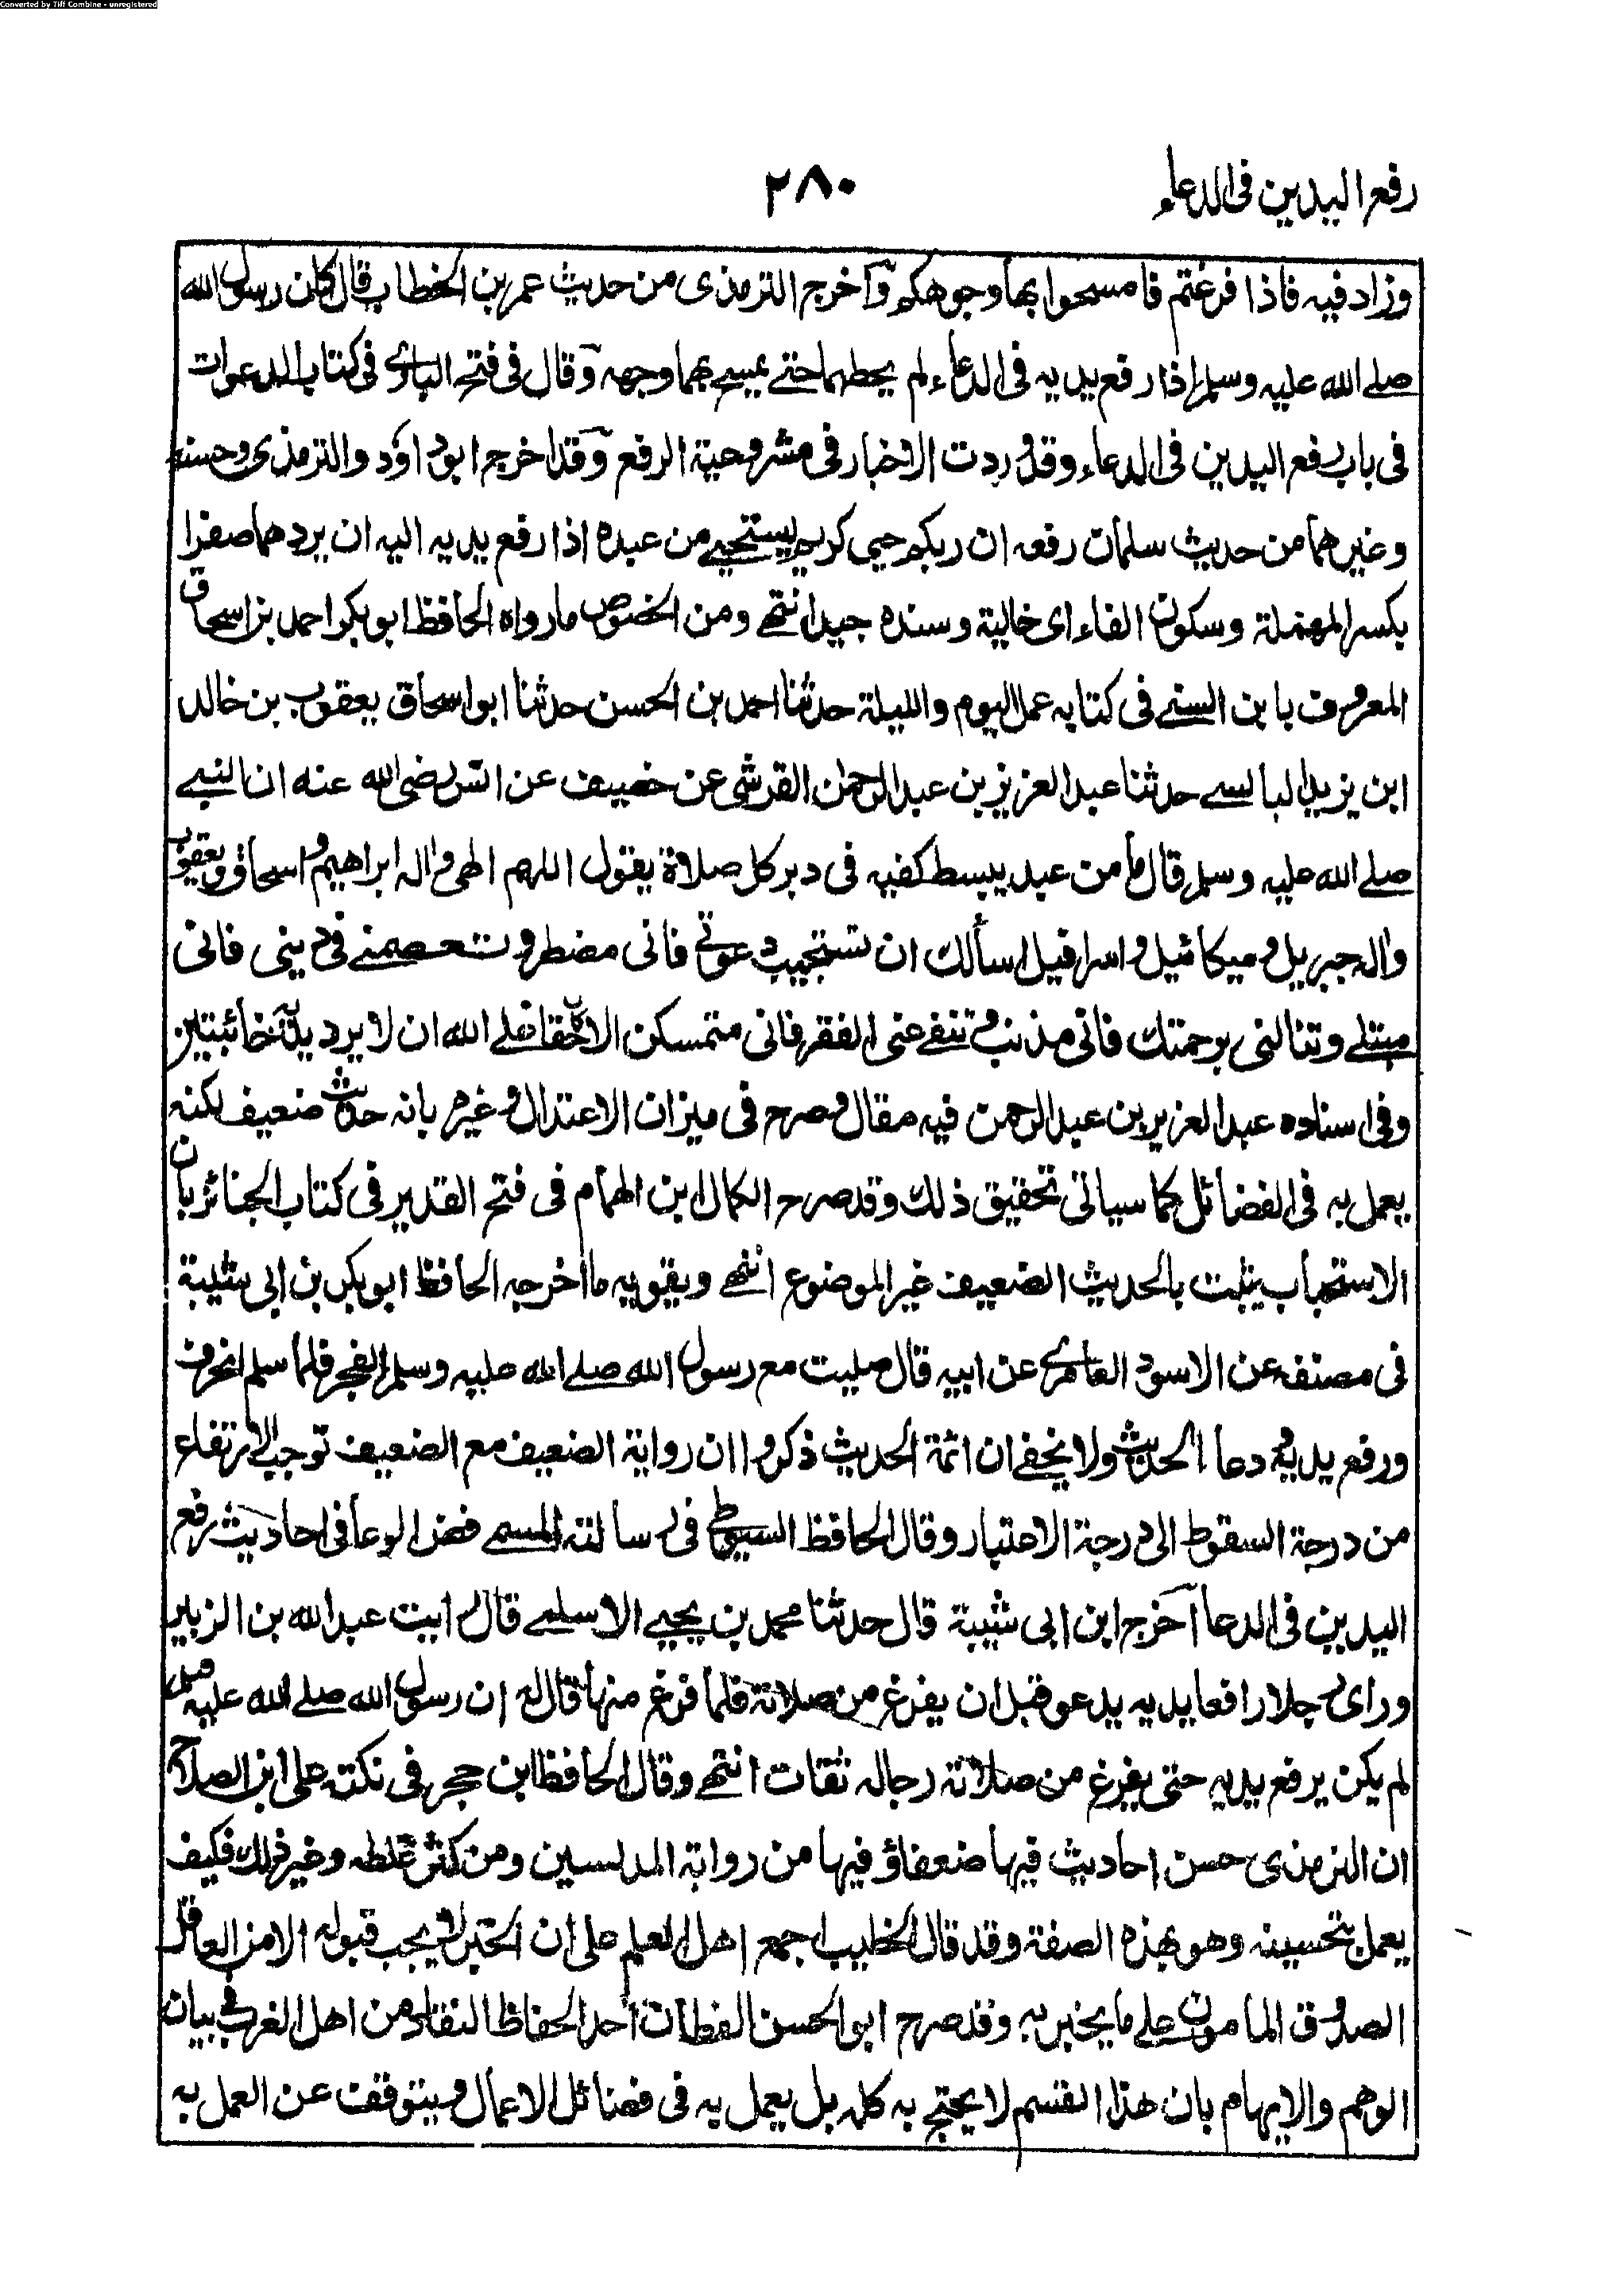 Converted by Tiff Combine - unregistered
رفع اليدين في الدعاء
٢٨٠
وزاد فيه فاذا فرغتم فامسحوا بها وجوهكم وآخرج الترمذى من حديث عمر بن الخطاب قال كان رسول الله
صلے الله عليه وسلم اذا رفع يديه فى الدعاء لم يحطهما حتے يمسح بهما وجهه وقال فى فتح البارے فى كتاب الدعوات
فى باب رفع اليدين فى الدعاء وقد وردت الاخبار فى مشروعية الرفع وقد اخرج ابو داؤد والترمذى وحسنه
وغيرهما من حديث سلمان رفعه ان ربكم حيى كريم يستحيے من عبده اذا رفع يديه اليه ان يردهما صفرا
بكسر المهملة وسكون الفاء اى خالية وسنده جيد انتهے ومن الخصوص ما رواه الحافظ ابو بكر احمد بن اسحاق
المعروف بابن السنے فى كتابه عمل اليوم والليلة حدثنا احمد بن الحسن حدثنا ابو اسحاق يعقوب بن خالد
ابن يزيد البالسے حدثنا عبد العزيز بن عبد الرحمن القرشى عن خصيف عن انس رضى الله عنه ان النبے
صلے الله عليه وسلم قال ما من عبد يبسط كفيه فى دبر كل صلاة يقول اللهم الهى واله ابراهيم واسحاق ويعقوب
واله جبريل وميكائيل واسرافيل اسألك ان تستجيب دعوتے فانى مضطر وتعصمنے فى دينى فانى
مبتلے وتنالنى برحمتك فانى مذنب وتنفے عنى الفقر فانى متمسكن الا كان حقا علے الله ان لا يرد يديه خائبتين
وفى اسناده عبد العزيز بن عبد الرحمن فيه مقال وصرح فى ميزان الاعتدال وغيره بانه حديث ضعيف لكنه
يعمل به فى الفضائل كما سياتى تحقيق ذلك وقد صرح الكمال ابن الهمام فى فتح القدير فى كتاب الجنائز بان
الاستحباب يثبت بالحديث الضعيف غير الموضوع انتهے ويقويه ما اخرجه الحافظ ابو بكر بن ابى شيبة
فى مصنفه عن الاسود العامرے عن ابيه قال صليت مع رسول الله صلے الله عليه وسلم الفجر فلما سلم انحرف
ورفع يديه ودعا الحديث ولا يخفے ان ائمة الحديث ذكروا ان رواية الضعيف مع الضعيف توجب الارتفاع
من درجة السقوط الى درجة الاعتبار وقال الحافظ السيوطے فى رسالته المسمے فض الوعا فى احاديث رفع
اليدين فى الدعا آخرج ابن ابى شيبة قال حدثنا محمد بن يحيے الاسلمے قال رايت عبد الله بن الزبير
وراى رجلا رافعا يديه يدعو قبل ان يفرغ من صلاته فلما فرغ منها قال له ان رسول الله صلے الله عليه وسلم
لم يكن يرفع يديه حتى يفرغ من صلاته رجاله ثقات انتهے وقال الحافظ ابن حجر فى نكته على ابن الصلاح
ان الترمذى حسن احاديث فيها ضعفاؤ فيها من رواية المدلسين ومن كثر غلطه وغير ذلك فكيف
يعمل بتحسينه وهو بهذه الصفة وقد قال الخطيب اجمع اهل العلم على ان الخبر لا يجب قبوله الا من العاقل
الصدوق المامون علے ما يخبر به وقد صرح ابو الحسن القطان احد الحفاظ النقاد من اهل الغرب فى بيان
الوهم والايهام بان هذا القسم لا يحتج به كله بل يعمل به فى فضائل الاعمال ويتوقف عن العمل به